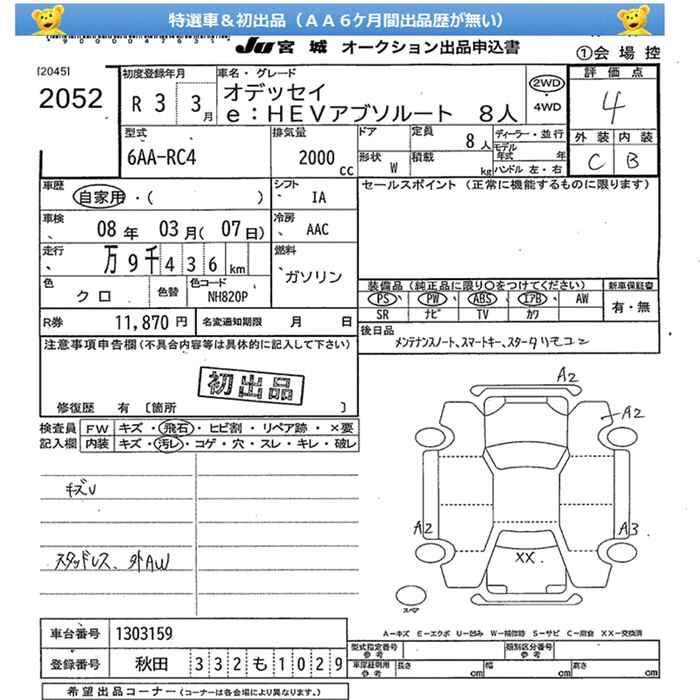 特選車＆初出品（ＡＡ６ケ月間出品歴が無い）
JU 宮城 オークション出品申込書
①会場控
[2045]
2052
初度登録年月
R 3 3月
車名・グレード
オデッセイ
e：HEVアブソルート 8人
2WD
・
4WD
評価点
4
外装 内装
C B
型式
6AA-RC4
排気量
2000 cc
ドア
定員
8人
形状 W
積載 kg
ディーラー・並行
モデル年式 年
ハンドル 左・右
車歴
自家用・( )
シフト IA
セールスポイント（正常に機能するものに限ります）
車検
08年 03月(07日)
冷房 AAC
走行
万 9千 4 3 6 km
燃料
ガソリン
色
クロ
色替
色コード
NH820P
装備品（純正品に限り〇をつけてください）
新車保証書
PS PW ABS エアB AW
SR ナビ TV カワ
有・無
R券 11,870円
名変通知期限 月 日
後日品
メンテナンスノート、スマートキー、スタータリモコン
注意事項申告欄（不具合内容等は具体的に記入して下さい）
初出品
修復歴 有 〔箇所 〕
検査員
記入欄
FW キズ・飛石・ヒビ割・リペア跡・×要
内装 キズ・汚レ・コゲ・穴・スレ・キレ・破レ
キズV
スタッドレス、外AW
A2
A2
A2
A3
XX
スペア
A－キズ E－エクボ U－凹ミ W－補修跡 S－サビ C－腐食 XX－交換済
車台番号 1303159
登録番号 秋田 332も1029
型式指定番号
参考
類別区分番号
参考
車庫証明用
参考
長さ cm 幅 cm 高さ cm
希望出品コーナー（コーナーは各会場により異なります。）